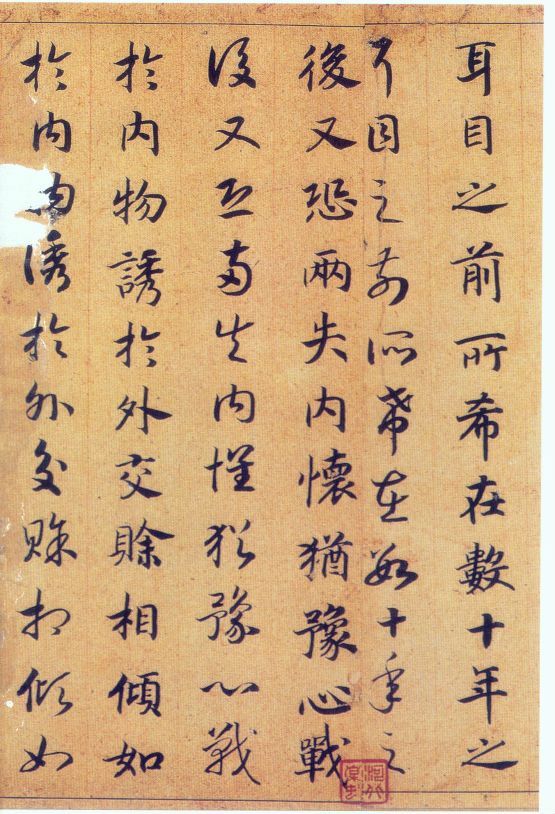 耳目之前所希在數十年之
耳目之前所希在數十年之
後又恐兩失內懷猶豫心戰
後又恐兩失內懷猶豫心戰
於內物誘於外交賒相傾如
於內誘於外交賒相傾如